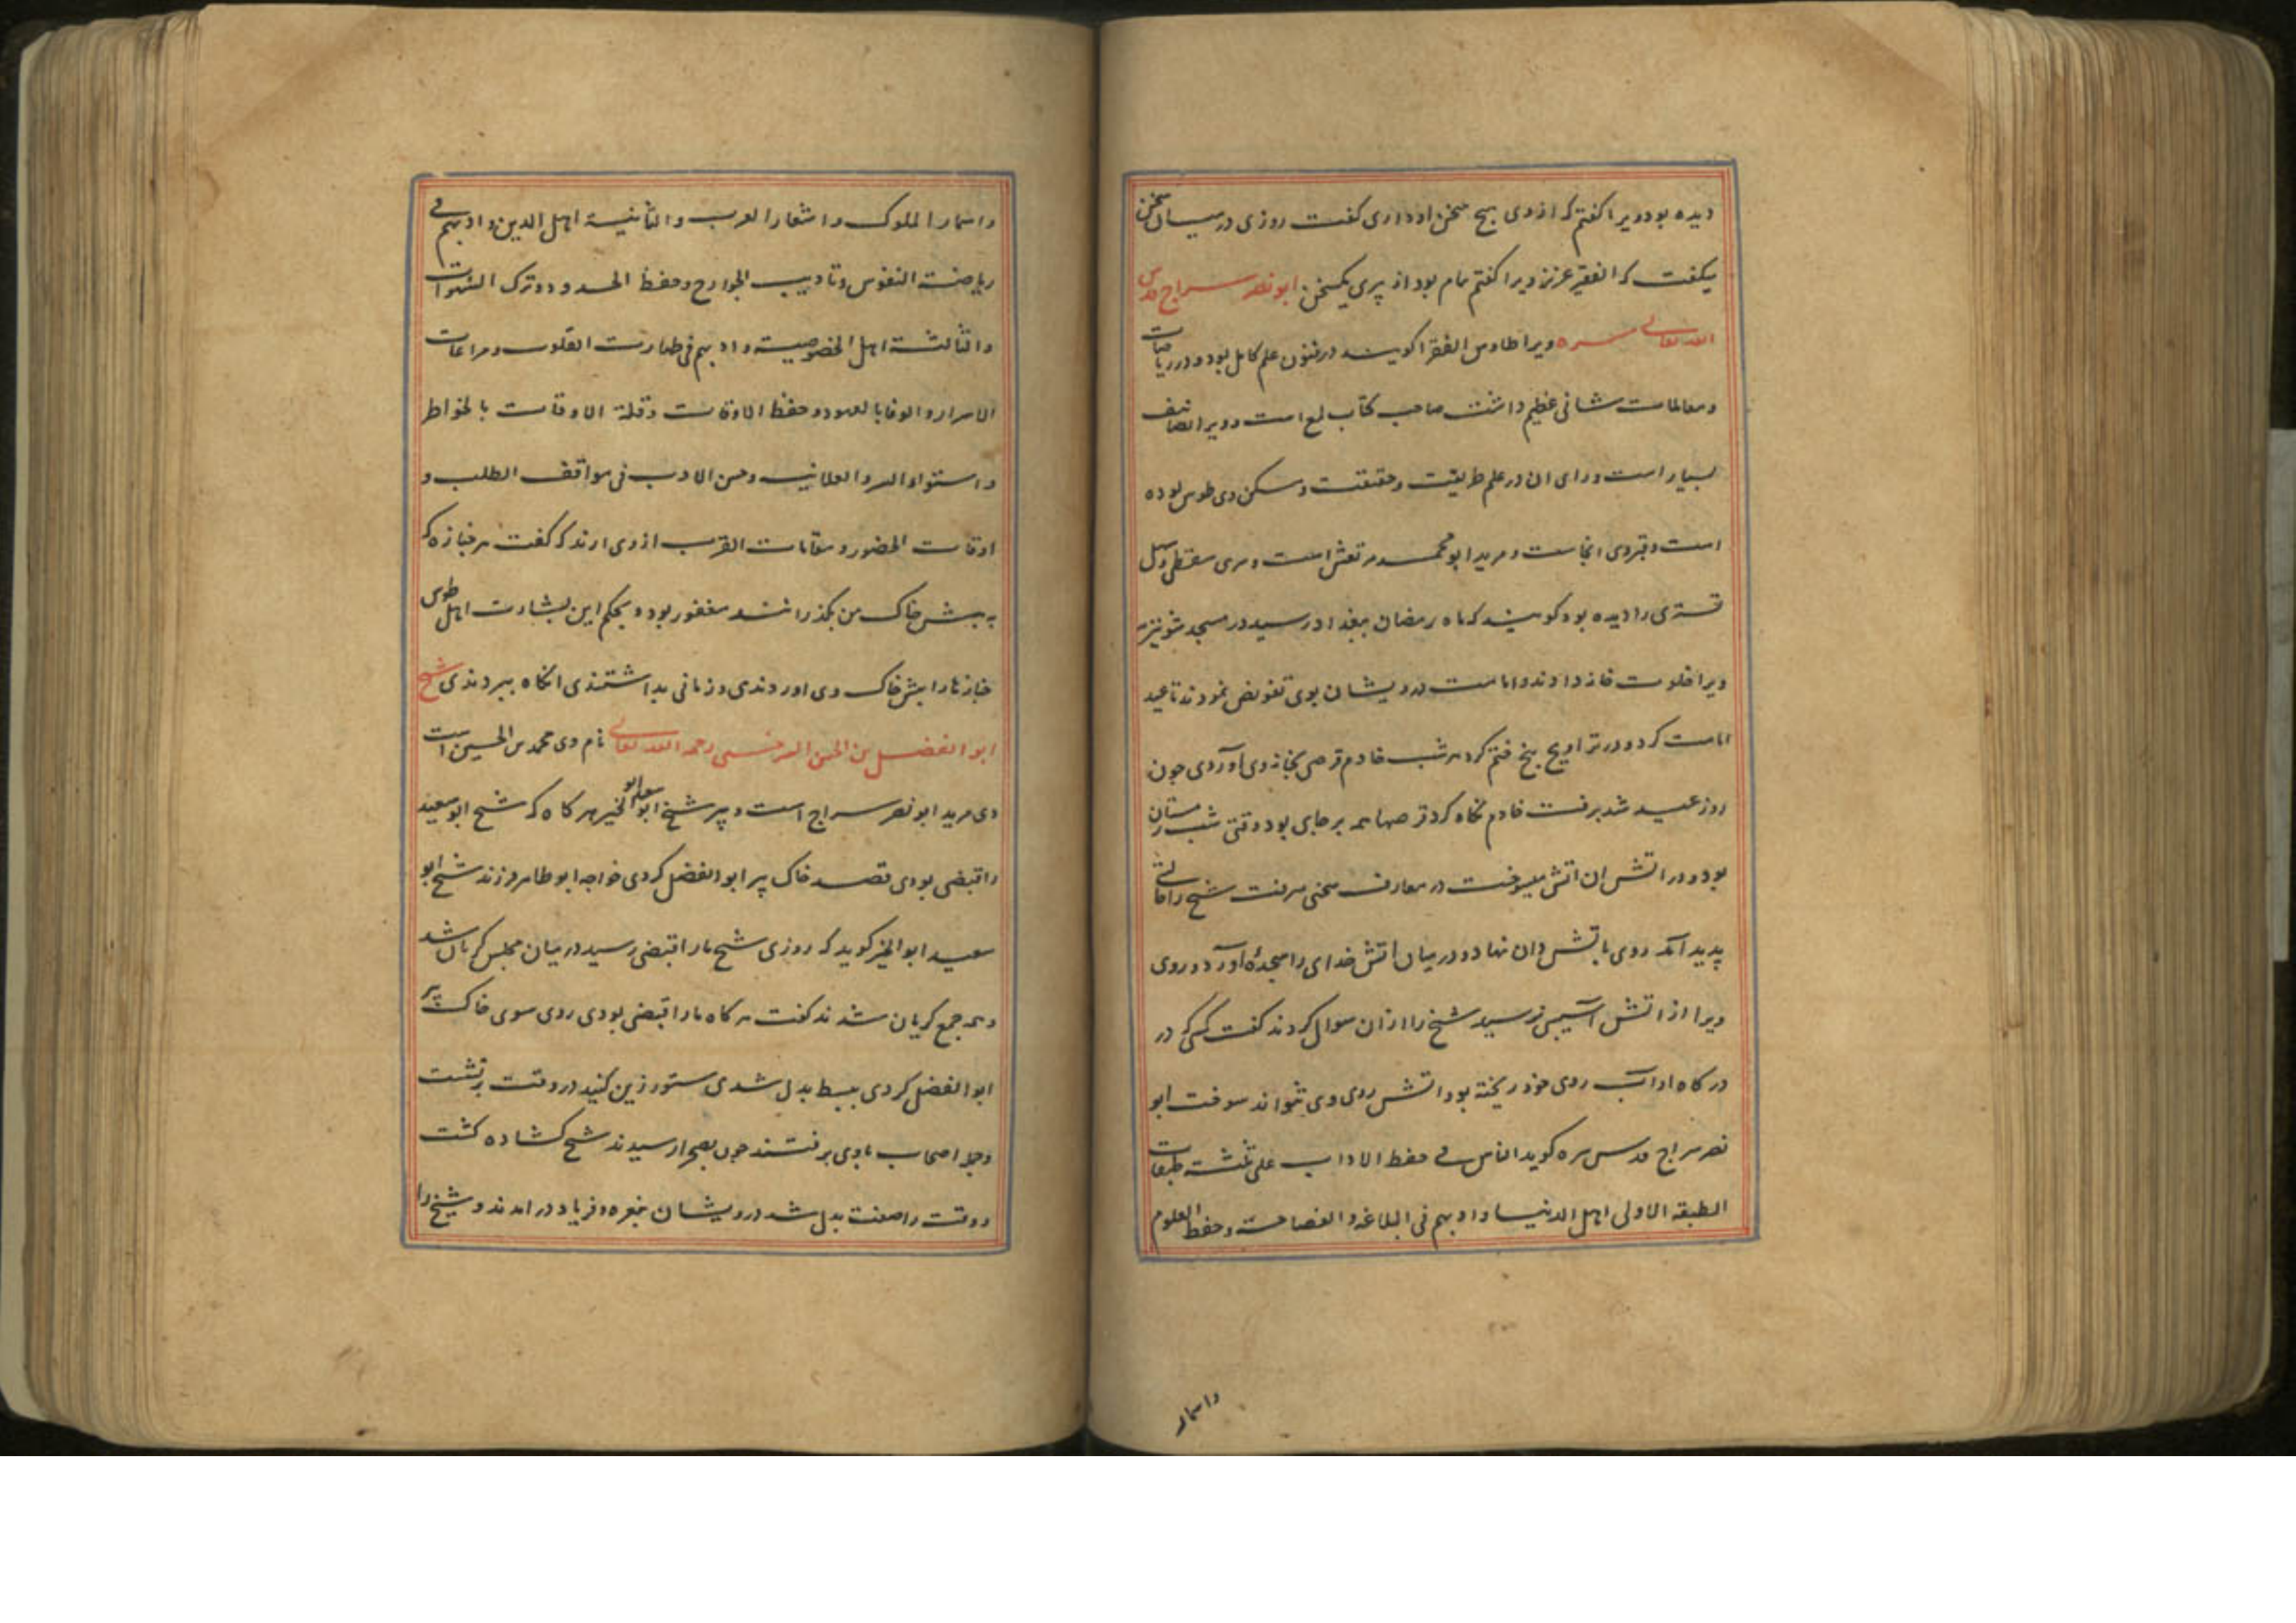 دیده بود ویرا گفتم که از وی هیچ سخن او داری گفت روزی در میان سخن
میگفت که الفقیر عزیز ویرا گفتم تمام بود از پری یکسخن ابو نصر سراج قدس
الله تعالی سره ویرا طاوس الفقرا گویند در فنون علم کامل بود و در ریاضات
و معاملات شانی عظیم داشت صاحب کتاب لمع است و ویرا تصانیف
بسیار است ورای ان در علم طریقت و حقیقت و مسکن وی طوس بوده
است و قبر وی انجاست و مرید ابو محمد مرتعش است و سری سقطی و سهل
تستری را دیده بود گویند که ماه رمضان ببغداد رسید در مسجد شونیزیه
ویرا خلوت خانه دادند و امامت درویشان بوی تفویض نمودند تا عید
امامت کرد و در تراویح پنج ختم کرد هر شب خادم قرصی بخانه وی آوردی چون
روز عید شد برفت خادم نگاه کرد قرصها همه بر جای بود وقتی شب زمستان
بود و در اتشدان اتش میسوخت در معارف سخنی میرفت شیخ را حالتی
پدید آمد روی باتشدان نهاد و در میان اتش خدای را سجده آورد و روی
ویرا از اتش آسیبی نرسید شیخ را از ان سوال کردند گفت کسی که در
درگاه او آب روی خود ریخته بود اتش روی وی نتواند سوخت ابو
نصر سراج قدس سره گوید الناس فی حفظ الاداب علی ثلثت طبقات
الطبقة الاولی اهل الدنیا و ادبهم فی البلاغه و الفصاحت و حفظ العلوم
واسمار
واسمار الملوک و اشعار العرب و الثانیة اهل الدین و ادبهم فی
ریاضت النفوس و تادیب الجوارح و حفظ الحدود و ترک الشهوات
والثالثة اهل الخصوصیة و ادبهم فی طهارت القلوب و مراعات
الاسرار و الوفا بالعهود و حفظ الاوقات و قلة الاوقات بالخواطر
و استواء السر و العلانیه و حسن الادب فی مواقف الطلب و
اوقات الحضور و مقامات القرب از وی ارند که گفت هر جنازه که
به پیش خاک من بگذرانند مغفور بود و بحکم این بشارت اهل طوس
جنازها را پیش خاک وی اوردندی و زمانی بداشتندی انگاه ببردندی شیخ
ابو الفضل بن الحسن السرخسی رحمه الله تعالی نام وی محمد بن الحسین است
وی مرید ابو نصر سراج است و پیر شیخ ابو سعید ابو الخیر هر گاه که شیخ ابو سعید
را قبضی بودی قصد خاک پیر ابو الفضل کردی خواجه ابو طاهر فرزند شیخ ابو
سعید ابو الخیر گوید که روزی شیخ ما را قبضی رسید در میان مجلس گریان شد
و همه جمع گریان شدند گفت هر گاه ما را قبضی بودی روی سوی خاک پیر
ابو الفضل کردی ببسط بدل شدی ستور زین کنید در وقت برنشست
و جمله اصحاب با وی برفتند چون بصحرا رسیدند شیخ کشاده گشت
و وقت را صفت بدل شد درویشان بنعره و فریاد در امدند و شیخ را